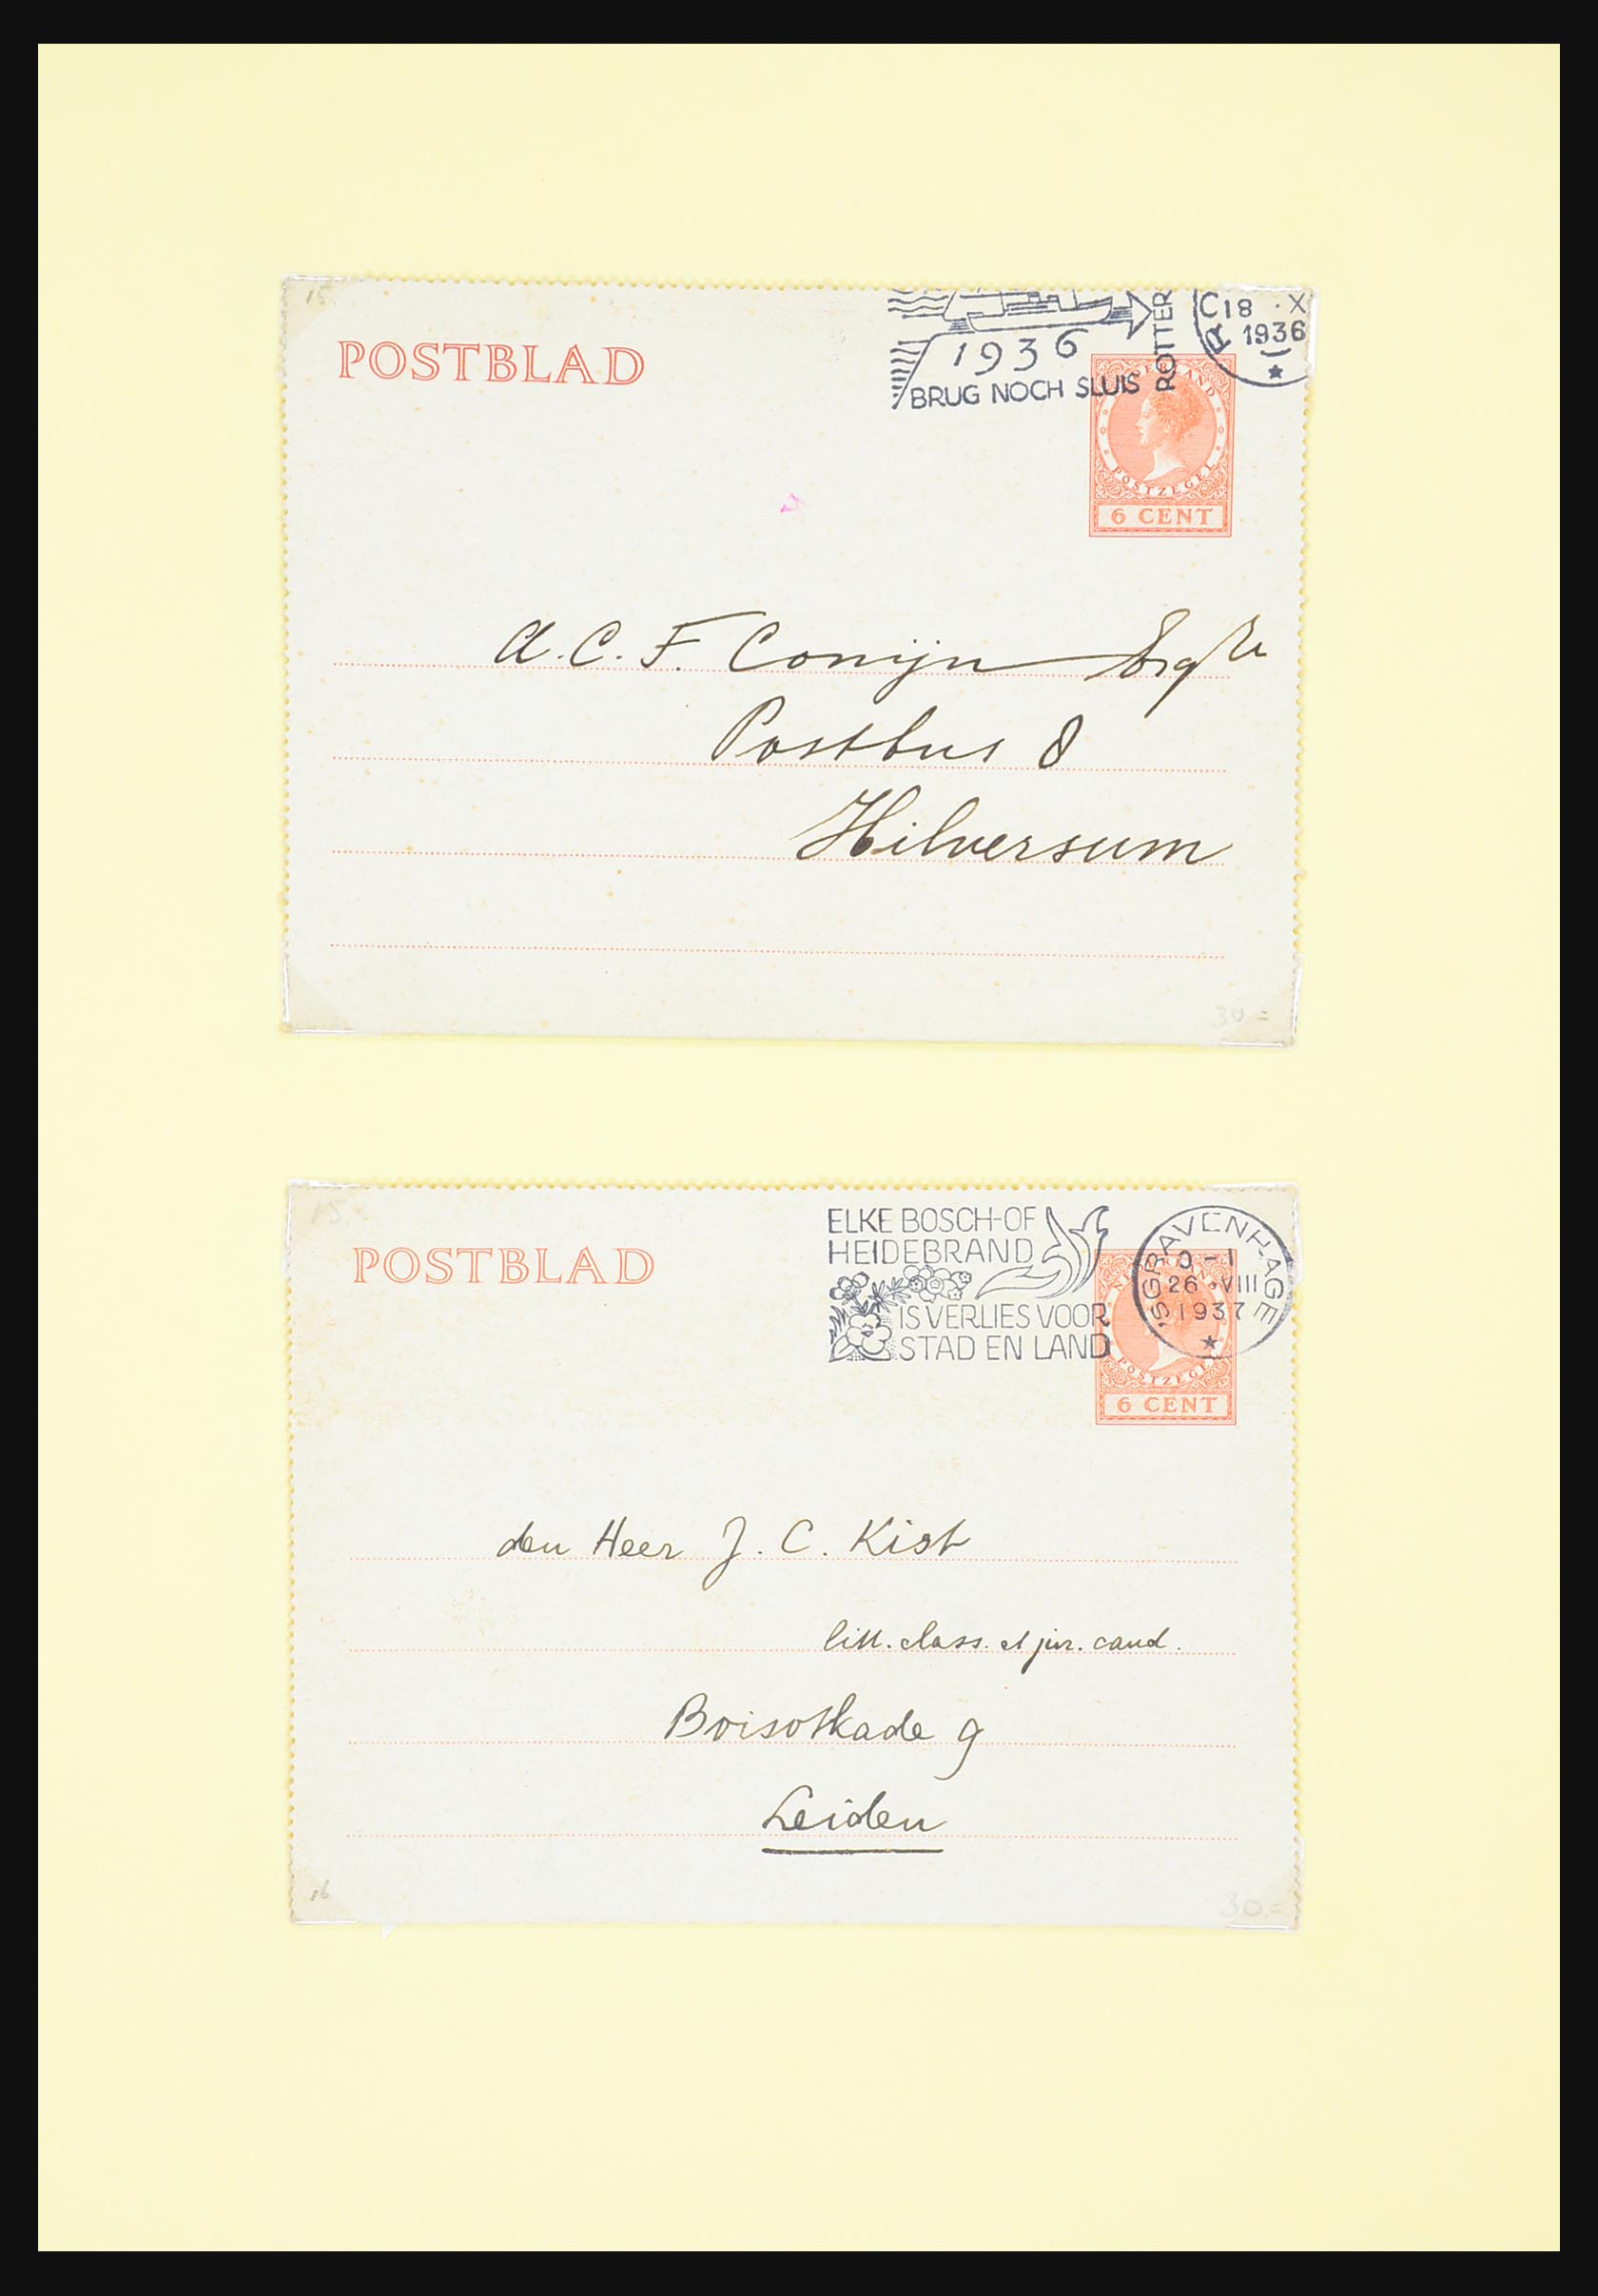 15
POSTBLAD
1936
BRUG NOCH SLUIS
ROTTER
C18 . X
1936
NEDERLAND
POSTZEGEL
6 CENT
A. C. F. Conijn
Postbus 8
Hilversum
30 =
15.
POSTBLAD
ELKE BOSCH-OF
HEIDEBRAND
IS VERLIES VOOR
STAD EN LAND
'SGRAVENHAGE
26 .VIII
1937
POSTZEGEL
6 CENT
den Heer J. C. Kist
litt. class. et jur. cand.
Boisotkade 9
Leiden
16
30.=